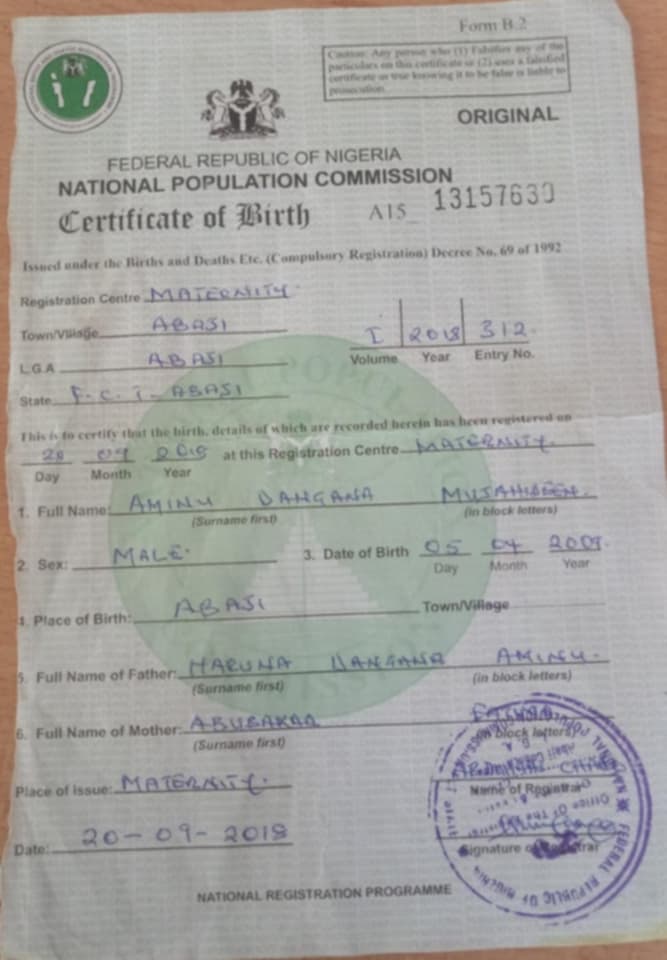 Form B.2
Caution: Any person who (1) Falsifies any of the
particulars on this certificate or (2) uses a falsified
certificate as true knowing it to be false is liable to
prosecution.
ORIGINAL
FEDERAL REPUBLIC OF NIGERIA
NATIONAL POPULATION COMMISSION
Certificate of Birth A15 13157630
Issued under the Births and Deaths Etc. (Compulsory Registration) Decree No. 69 of 1992
Registration Centre MATERNITY.
Town/Village ABAJI
I 2018 312.
Volume Year Entry No.
L.G.A ABAJI
State F.C.T- ABAJI
This is to certify that the birth, details of which are recorded herein has been registered on
20 09 2018 at this Registration Centre MATERNITY.
Day Month Year
1. Full Name: AMINU DANGANA MUJAHIDEEN.
(Surname first) (in block letters)
2. Sex: MALE. 3. Date of Birth 05 04 2009.
Day Month Year
4. Place of Birth: ABAJI Town/Village
5. Full Name of Father: HARUNA DANGANA AMINU.
(Surname first) (in block letters)
6. Full Name of Mother: ABUBAKAR
(Surname first) (in block letters)
Place of Issue: MATERNITY.
Name of Registrar
Date: 20-09-2018
Signature of Registrar
NATIONAL REGISTRATION PROGRAMME
FEDERAL REPUBLIC OF NIGERIA